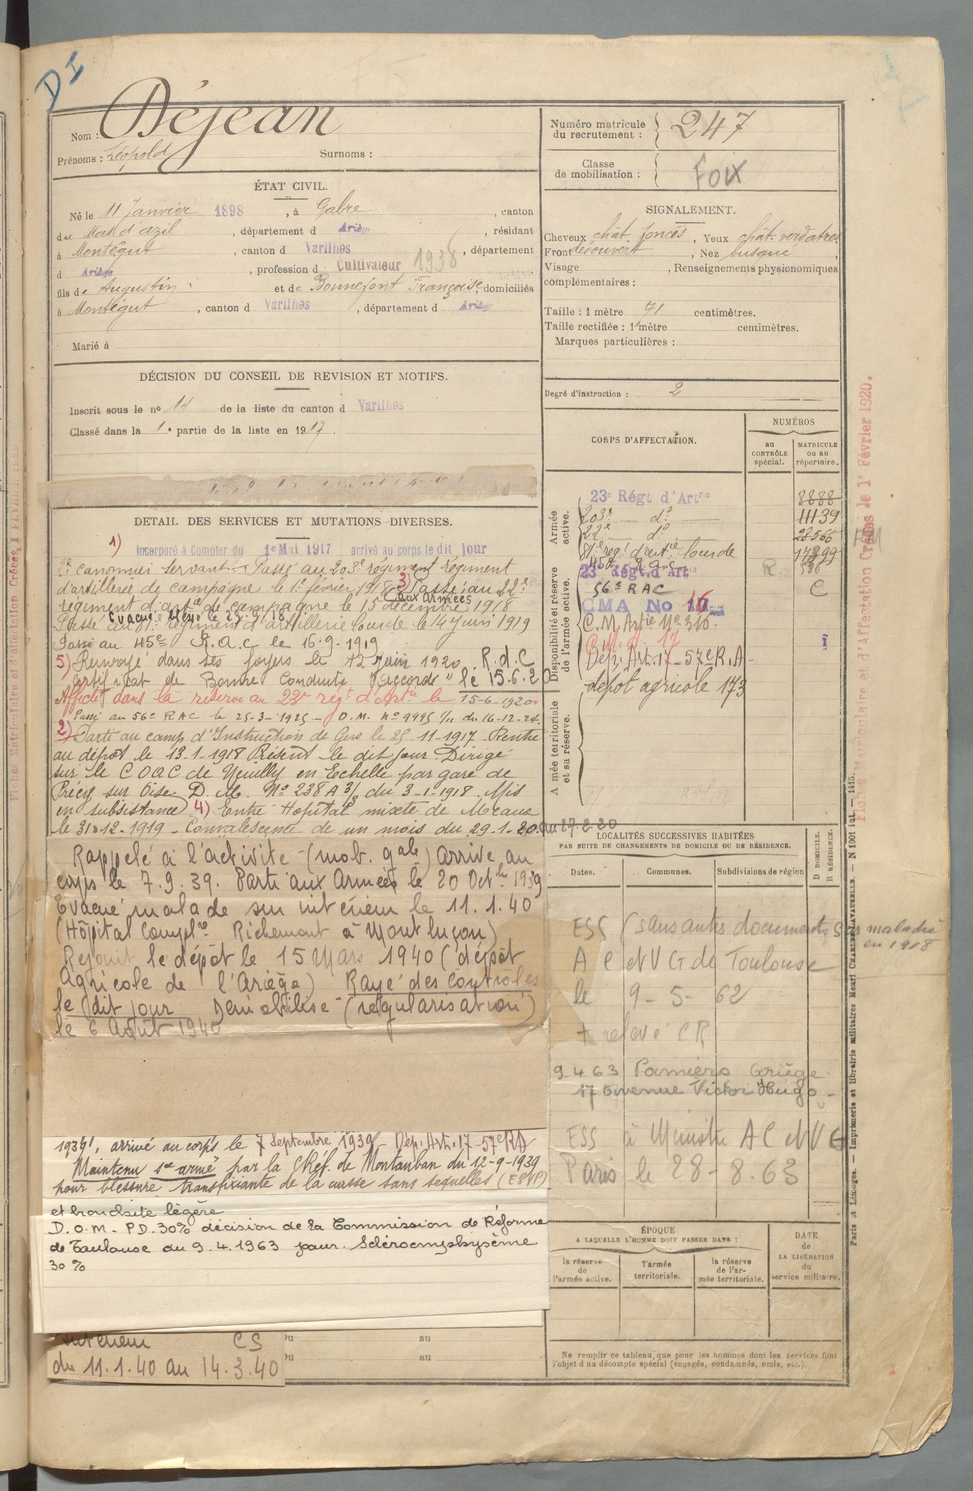 DI
Nom : Déjean
Prénoms : Léopold Surnoms :
ÉTAT CIVIL.
Né le 11 janvier 1898, à Gabre, canton
du Mas d'azil, département d Ariège, résidant
à Montégut, canton d Varilhes, département
d Ariège, profession d Cultivateur 1938
fils de Augustin et de Bonnefont Françoise, domiciliés
à Montégut, canton d Varilhes, département d Ariège
Marié à
DÉCISION DU CONSEIL DE REVISION ET MOTIFS.
Inscrit sous le no 14 de la liste du canton d Varilhes
Classé dans la 1e partie de la liste en 1917
DETAIL DES SERVICES ET MUTATIONS DIVERSES.
1) Incorporé à Compter du 1e Mai 1917 arrivé au corps le dit jour
2e canonnier servant. Passé au 203e régiment régiment
d'artillerie de campagne le 1er février 1918 3) Passé au 22e
aux Armées
régiment d'artie de campagne le 15 décembre 1918
Passé au régiment d'artillerie lourde le 14 juin 1919
Passé au 45e R.A.C le 16-9-1919
5) Renvoyé dans ses foyers le 12 juin 1920. R.d.C
Certificat de Bonne Conduite "Accordé" le 15.6.20
Affecté dans la réserve au 23e régt d'Artie le 15-6-1920
Passé au 56e RAC le 25-3-1925 - O.M. No 9995 1/11 du 16-12-24
2) Parti au camp d'Instruction de le 25-11-1917. Rentré
au dépôt le 13.1.1918 Présent le dit jour Dirigé
sur le C O A C de Neuilly en Echelle par gare de
Précy sur Oise D. M. No 238 A 3/3 du 3-1-1918. Mis
en subsistance 4) Entré Hôpital mixte de Meaux
le 31-12-1919 - Convalescence de un mois du 29-1-20 au 27.2.20
Rappelé à l'activité (mob. gale) arrivé au
corps le 7.9.39. Parti aux Armées le 20 Octbre 1939
Evacué malade sur intérieur le 11.1.40
(Hôpital complre Richemont à Montluçon)
Rejoint le dépôt le 15 Mars 1940 (dépôt
Agricole de l'Ariège) Rayé des contrôles
le dit jour Démobilisé (régularisation)
le 6 Août 1940
1939, arrivé au corps le 7 Septembre 1939 - Dép. Art. 17 - 57e RA
Maintenu se armé par la C. Réf. de Montauban du 12-9-1939
pour blessure transfixiante de la cuisse sans séquelles (ESVP)
et bronchite légère
D.O.M. - P.D. 30% décision de la Commission de Réforme
de Toulouse du 9.4.1963 pour Scléroemphysème
30 %
intérieur CS
du 11.1.40 au 14.3.40
du au
du au
Numéro matricule du recrutement : 247
Classe de mobilisation : Foix
SIGNALEMENT.
Cheveux chât. foncés, Yeux chât. verdâtres
Front découvert, Nez busqué
Visage , Renseignements physionomiques
complémentaires :
Taille : 1 mètre 71 centimètres.
Taille rectifiée : 1 mètre centimètres.
Marques particulières :
Degré d'instruction : 2
CORPS D'AFFECTATION.
NUMÉROS
au CONTRÔLE spécial.
MATRICULE ou au répertoire.
Armée active.
23e Régt d'Artie 8888
203e do 11139
22e do
régt d'artie lourde
45e R.A.C.
Disponibilité et réserve de l'armée active.
23 Régt. d'Art R
56e RAC C
CMA No 16
C.M. Artie No 316
C.M.A. 17
Dép. Art. 17 - 57e R.A.
dépôt agricole 173
Armée territoriale et sa réserve.
LOCALITÉS SUCCESSIVES HABITÉES
PAR SUITE DE CHANGEMENTS DE DOMICILE OU DE RÉSIDENCE.
Dates. Communes. Subdivisions de région
D DOMICILE.
R RÉSIDENCE.
ESS (sans autes documents sur maladie en 1918
A C et V G de Toulouse
le 9-5-62
+ relevé CR
9 4 63 Pamiers Ariège
17 Avenue Victor Hugo
ESS à Ministre A C et V G
Paris le 28-8.63
ÉPOQUE
A LAQUELLE L'HOMME DOIT PASSER DANS :
DATE de LA LIBÉRATION du service militaire.
la réserve de l'armée active.
l'armée territoriale.
la réserve de l'armée territoriale.
Ne remplir ce tableau que pour les hommes dont les services font
l'objet d'un décompte spécial (engagés, condamnés, omis, etc.).
Paris et Limoges. — Imprimerie et librairie militaires Henri CHARLES-LAVAUZELLE.
Fiches Matriculaire et d'Affectation Créées le 1er Février 1920.